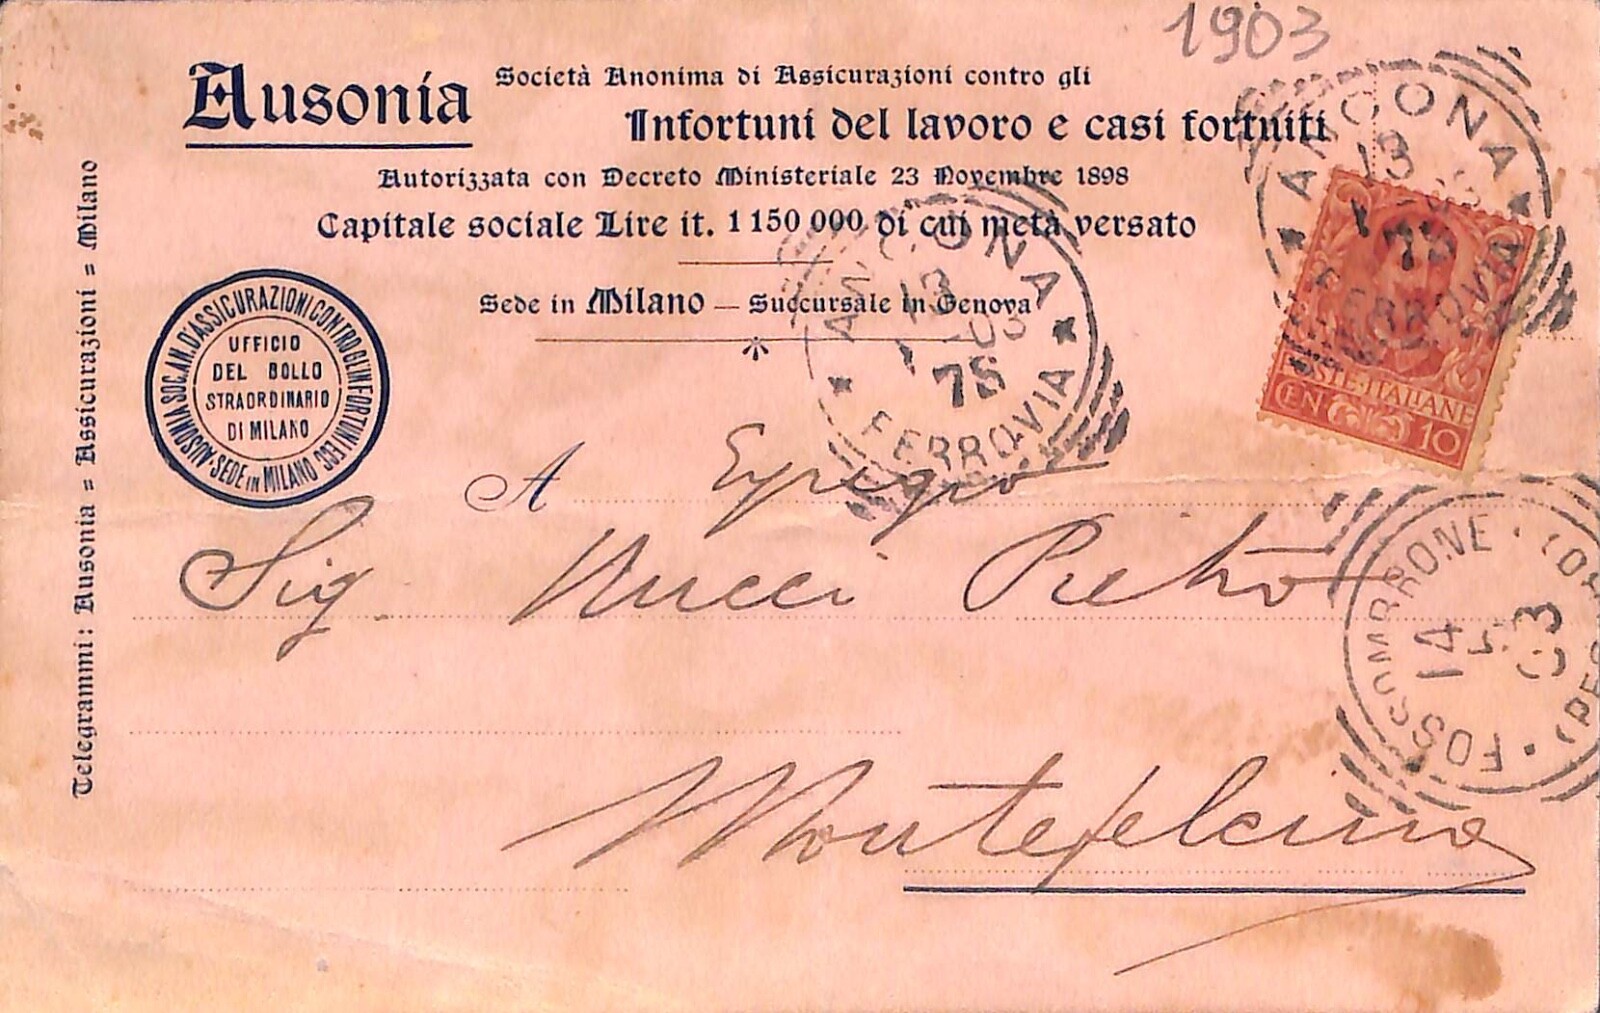 1903
Ausonia
Società Anonima di Assicurazioni contro gli
Infortuni del lavoro e casi fortuiti
Autorizzata con Decreto Ministeriale 23 Novembre 1898
Capitale sociale Lire it. 1 150 000 di cui metà versato
Sede in Milano — Succursale in Genova
Telegrammi: Ausonia = Assicurazioni = Milano
AUSONIA SOC. AN. D'ASSICURAZIONI CONTRO GL'INFORTUNI ECC
SEDE IN MILANO
UFFICIO
DEL BOLLO
STRAORDINARIO
DI MILANO
ANCONA
13
03
7S
FERROVIA
ANCONA
13
7S
FERROVIA
POSTE ITALIANE
CEN 10
A Egregio
Sig Nucci Pietro
Montefelcino
FOSSOMBRONE
14
5
03